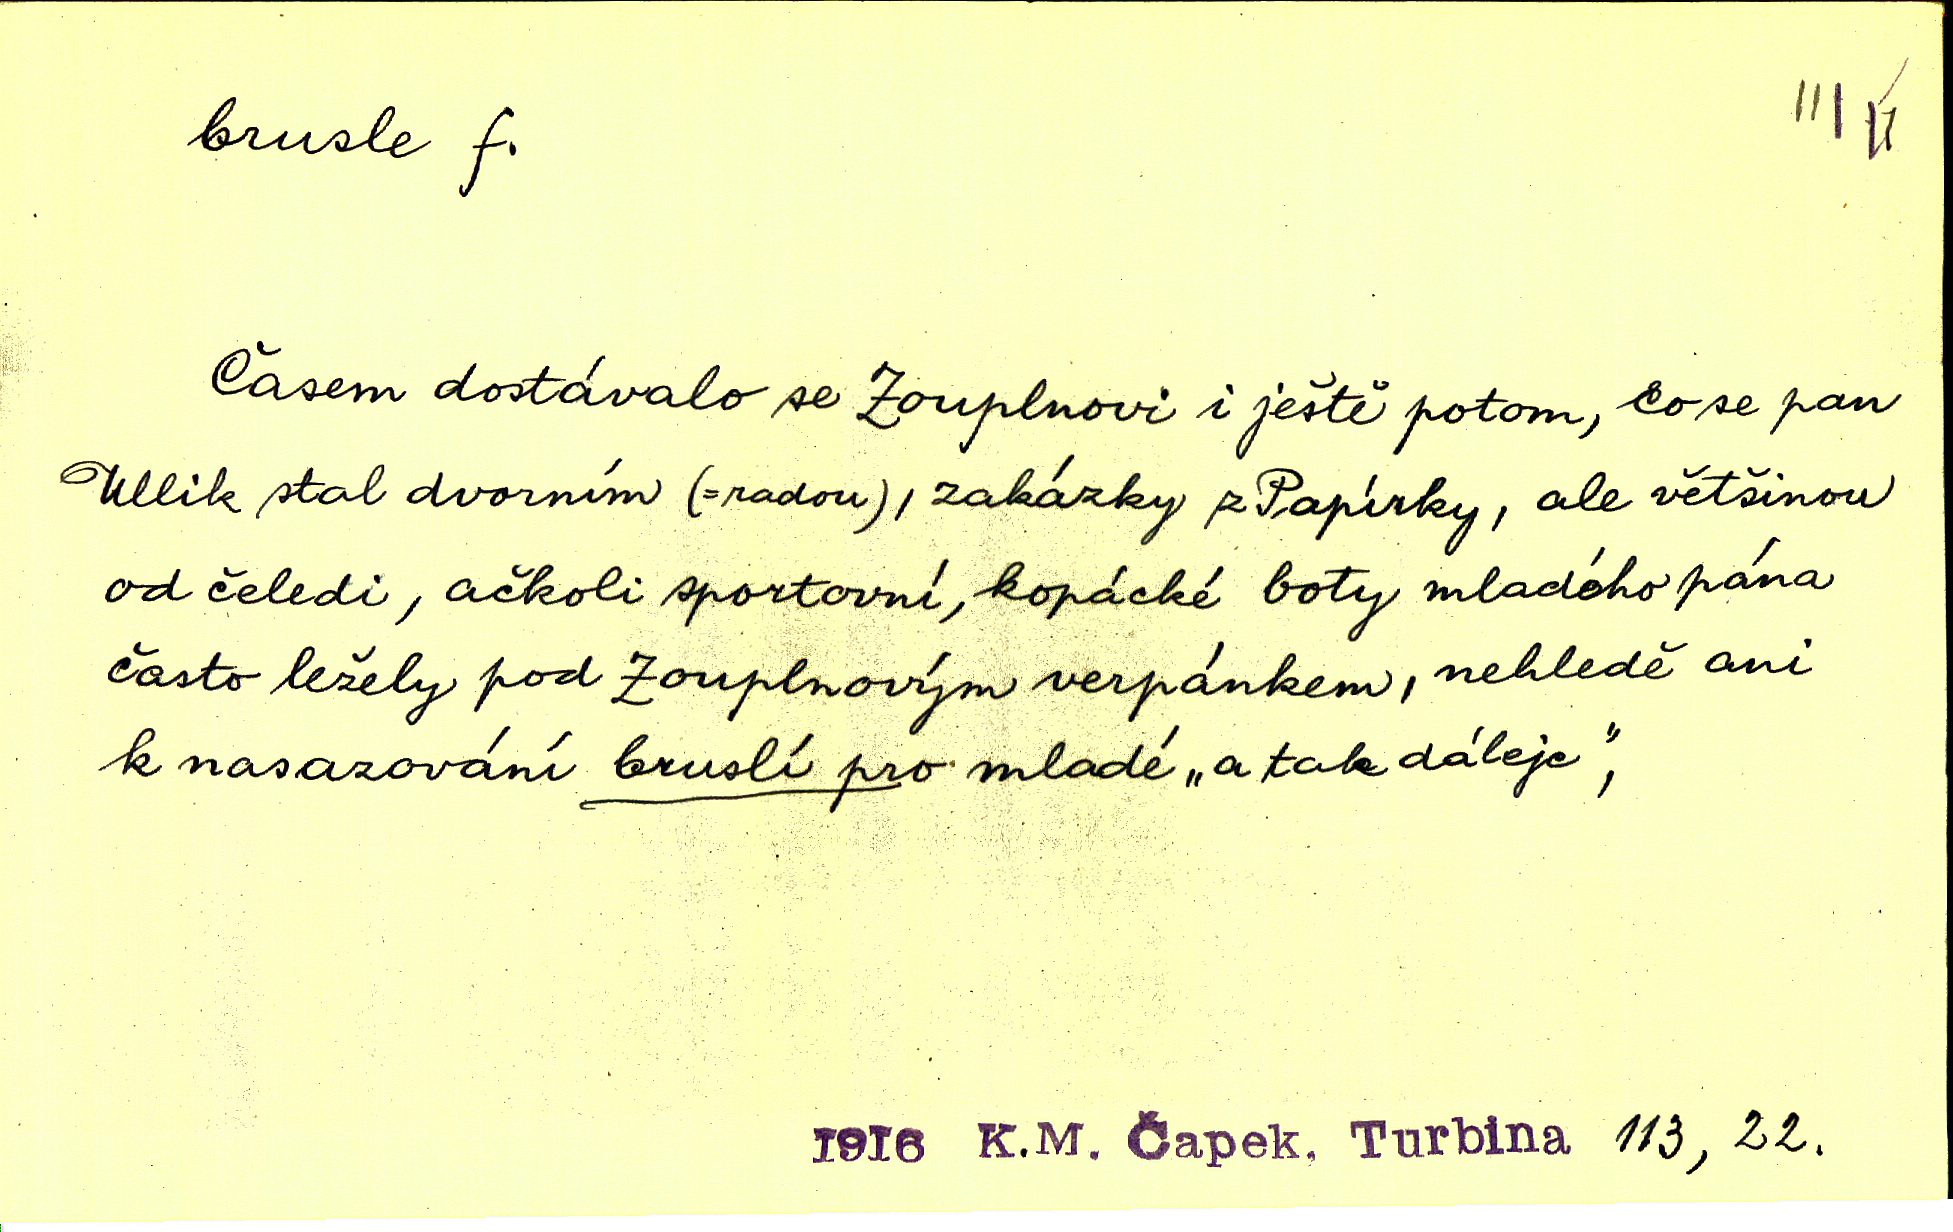 brusle f.
Časem dostávalo se Zouplnovi i ještě potom, co se pan
Ullik stal dvorním (=radou), zakázky z Papírky, ale většinou
od čeledi, ačkoli sportovní, kopácké boty mladého pána
často ležely pod Zouplnovým verpánkem, nehledě ani
k nasazování bruslí pro mladé „a tak dáleje",
1916 K.M. Čapek, Turbina 113, 22.